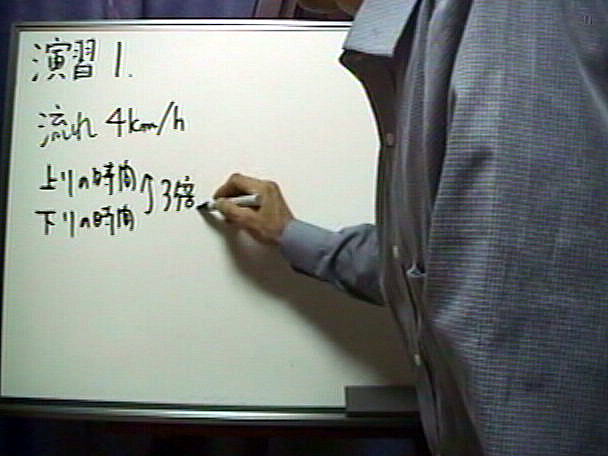 演習 1.
流れ 4km/h
上りの時間
下りの時間 ↑ 3倍